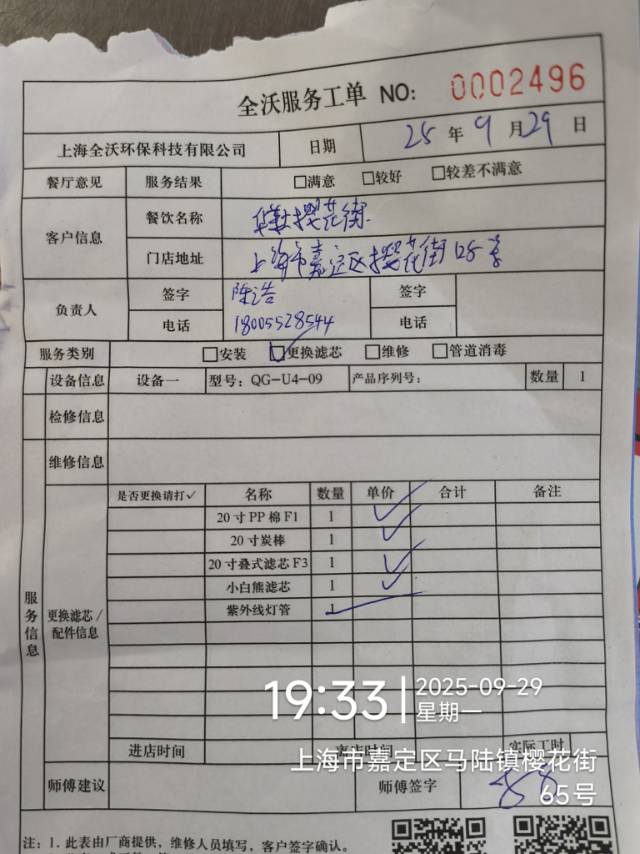 全沃服务工单 NO: 0002496
上海全沃环保科技有限公司 日期 25 年 9 月 29 日
餐厅意见 服务结果 □满意 □较好 □较差不满意
客户信息 餐饮名称 樱花街
门店地址 上海市嘉定区樱花街 125 号
负责人 签字 陈浩 签字
电话 18005528544 电话
服务类别 □安装 ☑更换滤芯 □维修 □管道消毒
设备信息 设备一 型号: QG-U4-09 产品序列号: 数量 1
检修信息
维修信息
服务信息 更换滤芯/配件信息
是否更换请打✓ 名称 数量 单价 合计 备注
20寸PP棉F1 1 ✓
20寸炭棒 1 ✓
20寸叠式滤芯F3 1 ✓
小白熊滤芯 1 ✓
紫外线灯管 1 ✓
19:33 2025-09-29
星期一
进店时间 离店时间 实际工时
上海市嘉定区马陆镇樱花街
65号
师傅建议 师傅签字
注: 1. 此表由厂商提供, 维修人员填写, 客户签字确认。